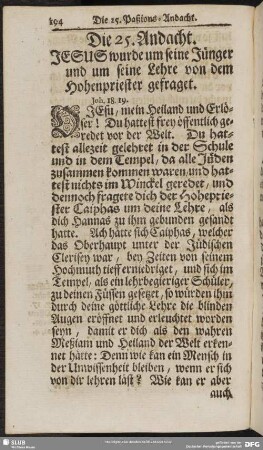 194 Die 25. Paßions-Andacht.
Die 25. Andacht.
JESUS wurde um seine Jünger
und um seine Lehre von dem
Hohenpriester gefraget.
Joh. 18. 19.
O JEsu, mein Heiland und Erlö-
ser! Du hattest frey öffentlich ge-
redet vor der Welt. Du hat-
test allezeit gelehret in der Schule
und in dem Tempel, da alle Jüden
zusammen kommen waren, und hat-
test nichts im Winckel geredet, und
dennoch fragete dich der Hoheprie-
ster Caiphas um deine Lehre, als
dich Hannas zu ihm gebunden gesandt
hatte. Ach hätte sich Caiphas, welcher
das Oberhaupt unter der Jüdischen
Clerisey war, bey Zeiten von seinem
Hochmuth tieff erniedriget, und sich im
Tempel, als ein lehrbegieriger Schüler,
zu deinen Füssen gesetzet, so würden ihm
durch deine göttliche Lehre die blinden
Augen eröffnet und erleuchtet worden
seyn, damit er dich als den wahren
Meßiam und Heiland der Welt erken-
net hätte: Denn wie kan ein Mensch in
der Unwissenheit bleiben, wenn er sich
von dir lehren läst? Wie kan er aber
auch
SLUB
DFG